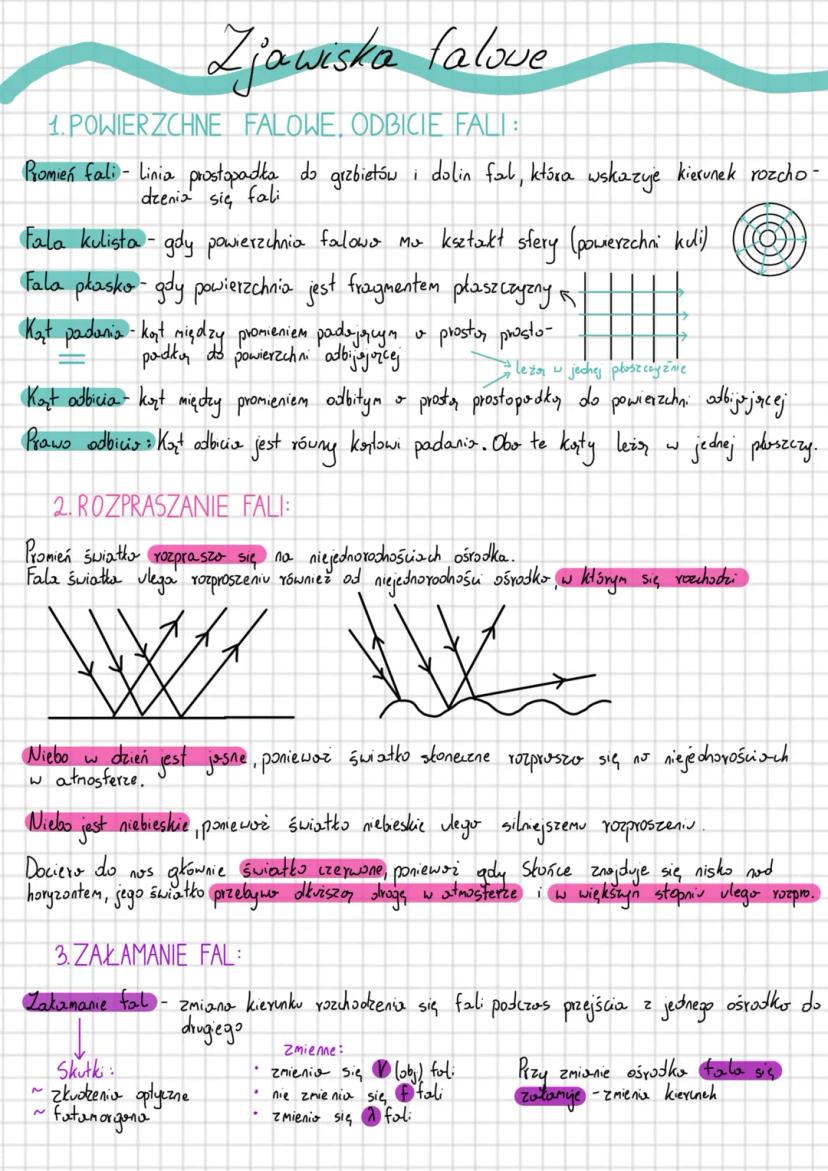 Zjawiska falowe
1. POWIERZCHNE FALOWE. ODBICIE FALI:
Promień fali - linia prostopadła do grzbietów i dolin fal, która wskazuje kierunek rozcho-
dzenia się fali
Fala kulista - gdy powierzchnia falowa ma kształt sfery (powierzchni kuli)
Fala płaska - gdy powierzchnia jest fragmentem płaszczyzny
Kąt padania - kąt między promieniem padającym a prostą prosto-
padłą do powierzchni odbijającej
leżą w jednej płaszczyźnie
Kąt odbicia - kąt między promieniem odbitym a prostą prostopadłą do powierzchni odbijającej
Prawo odbicia: Kąt odbicia jest równy kątowi padania. Oba te kąty leżą w jednej płaszczy.
2. ROZPRASZANIE FALI:
Promień światła rozprasza się na niejednorodnościach ośrodka.
Fala światła ulega rozproszeniu również od niejednorodności ośrodka, w którym się rozchodzi
Niebo w dzień jest jasne, ponieważ światło słoneczne rozprasza się na niejednorościach
w atmosferze.
Niebo jest niebieskie, ponieważ światło niebieskie ulega silniejszemu rozproszeniu.
Dociera do nas głównie światło czerwone, ponieważ gdy Słońce znajduje się nisko nad
horyzontem, jego światło przebywa dłuższą drogę w atmosferze i w większym stopniu ulega rozpro.
3. ZAŁAMANIE FAL:
Załamanie fal - zmiana kierunku rozchodzenia się fali podczas przejścia z jednego ośrodka do
drugiego
Skutki:
~ złudzenia optyczne
~ fatamorgana
zmienne:
• zmienia się V (obj) fali
• nie zmienia się f fali
• zmienia się λ fali
Przy zmianie ośrodka fala się
załamuje - zmienia kierunek